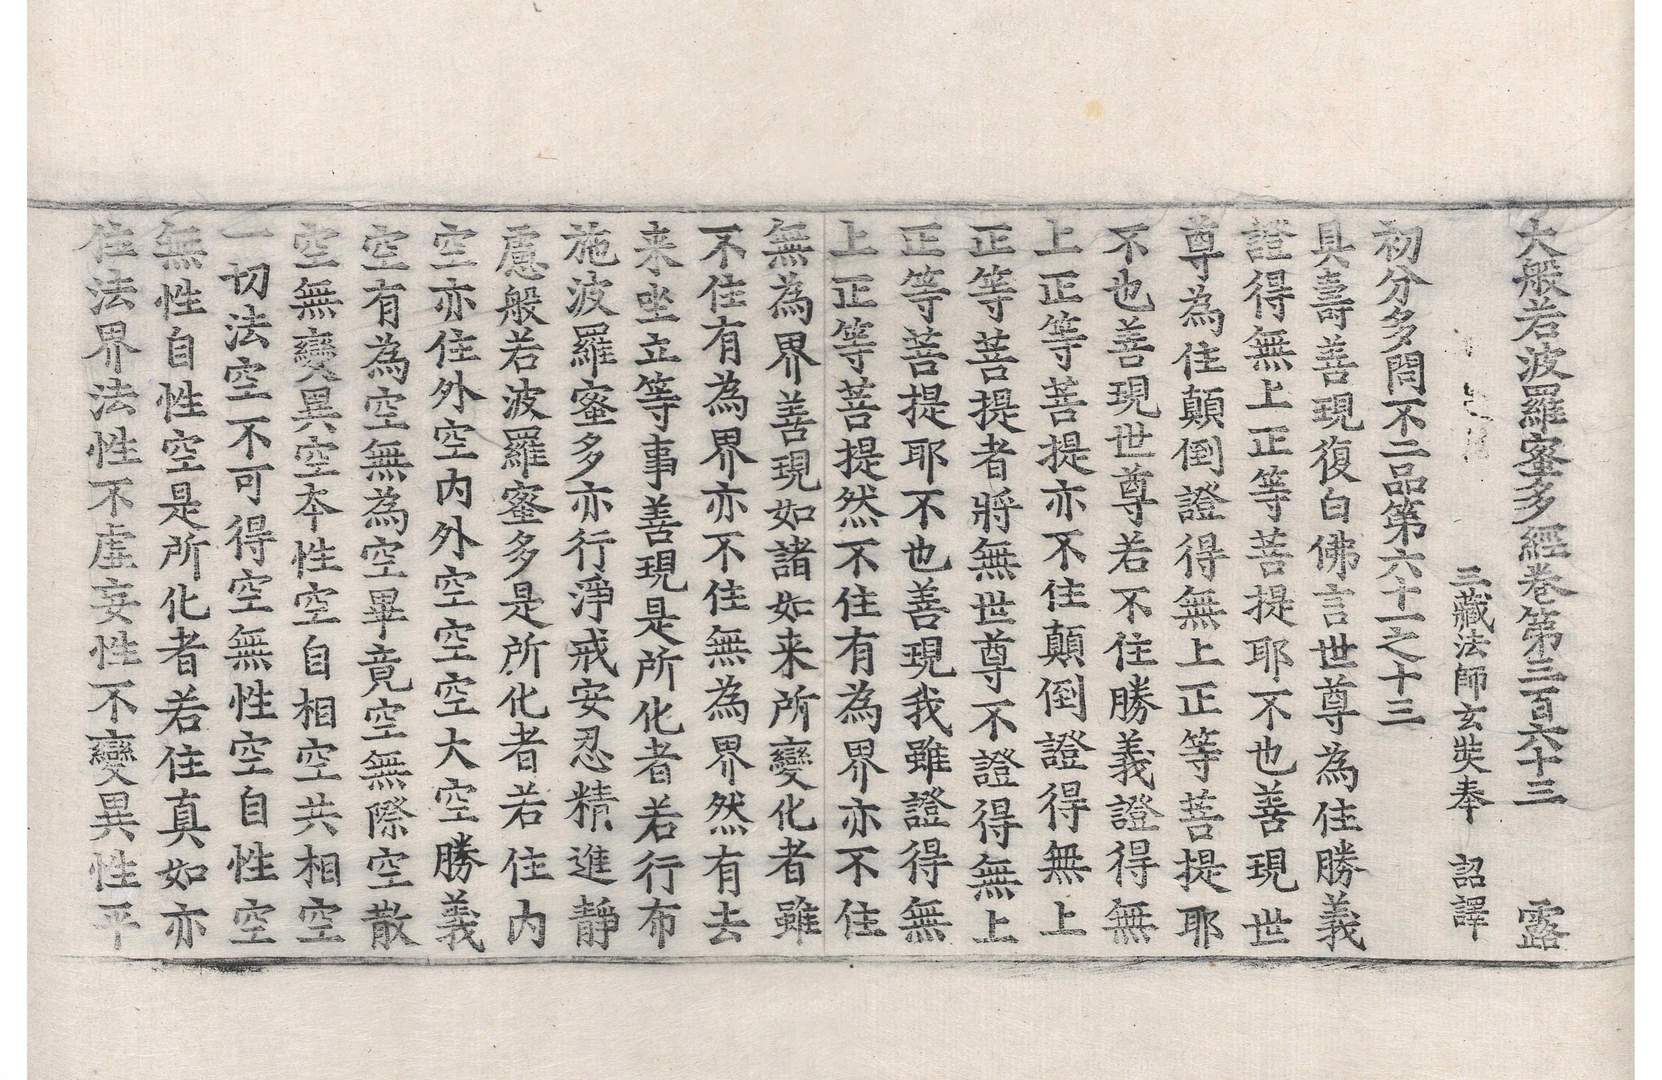 大般若波羅蜜多經卷第三百六十三　露
三藏法師玄奘奉　詔譯
初分多問不二品第六十一之十三
具壽善現復白佛言世尊為住勝義
證得無上正等菩提耶不也善現世
尊為住顛倒證得無上正等菩提耶
不也善現世尊若不住勝義證得無
上正等菩提亦不住顛倒證得無上
正等菩提者將無世尊不證得無上
正等菩提耶不也善現我雖證得無
上正等菩提然不住有為界亦不住
無為界善現如諸如来所變化者雖
不住有為界亦不住無為界然有去
来坐立等事善現是所化者若行布
施波羅蜜多亦行淨戒安忍精進靜
慮般若波羅蜜多是所化者若住内
空亦住外空内外空空空大空勝義
空有為空無為空畢竟空無際空散
空無變異空本性空自相空共相空
一切法空不可得空無性空自性空
無性自性空是所化者若住真如亦
住法界法性不虛妄性不變異性平